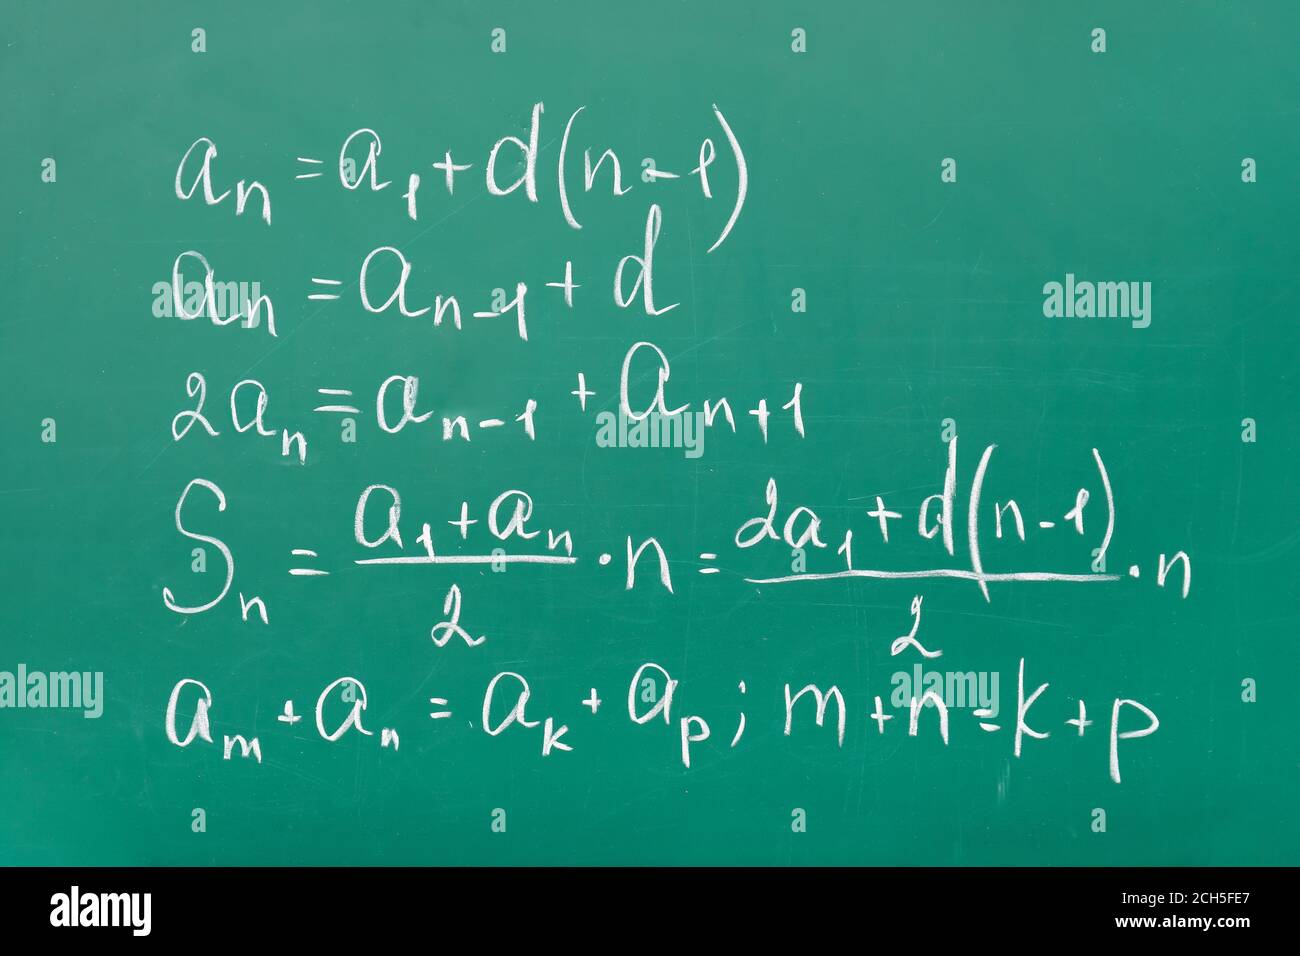 aₙ = a₁ + d(n-1)
aₙ = aₙ₋₁ + d
2aₙ = aₙ₋₁ + aₙ₊₁
Sₙ = (a₁ + aₙ)/2 · n = (2a₁ + d(n-1))/2 · n
aₘ + aₙ = aₖ + aₚ; m+n=k+p
alamy
alamy
alamy
alamy
Image ID: 2CH5FE7
www.alamy.com